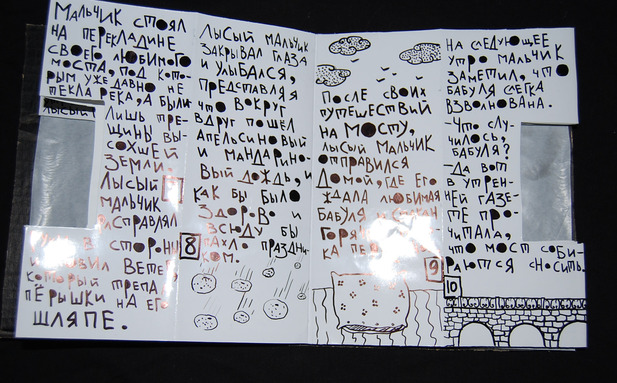 МАЛЬЧИК СТОЯЛ
НА ПЕРЕКЛАДИНЕ
СВОЕГО ЛЮБИМОГО
МОСТА, ПОД КОТО-
РЫМ УЖЕ ДАВНО НЕ
ТЕКЛА РЕКА, А БЫЛИ
ЛЫСЫЙ
ЛИШЬ ТРЕ-
ЩИНЫ ВЫ-
СОХШЕЙ
ЗЕМЛИ.
ЛЫСЫЙ
МАЛЬЧИК
РАСПРАВЛЯЛ
В СТОРОНЫ
ВЕТЕР,
КОТОРЫЙ ТРЕПАЛ
ПЁРЫШКИ НА ЕГО
ШЛЯПЕ.
ЛЫСЫЙ МАЛЬЧИК
ЗАКРЫВАЛ ГЛАЗА
И УЛЫБАЛСЯ,
ПРЕДСТАВЛЯЯ
ЧТО ВОКРУГ
ВДРУГ ПОШЕЛ
АПЕЛЬСИНОВЫЙ
И МАНДАРИНО-
ВЫЙ ДОЖДЬ, И
КАК БЫ БЫЛО
ЗДОРОВО И
ВСЮДУ БЫ
ПАХЛО ПРАЗДНИ-
КОМ.
8
ПОСЛЕ СВОИХ
ПУТЕШЕСТВИЙ
НА МОСТУ,
ЛЫСЫЙ МАЛЬЧИК
ОТПРАВИЛСЯ
ДОМОЙ, ГДЕ ЕГО
ЖДАЛА ЛЮБИМАЯ
БАБУЛЯ И СТАКАН
9
НА СЛЕДУЮЩЕЕ
УТРО МАЛЬЧИК
ЗАМЕТИЛ, ЧТО
БАБУЛЯ СЛЕГКА
ВЗВОЛНОВАНА.
-ЧТО СЛУ-
ЧИЛОСЬ,
БАБУЛЯ?
-ДА ВОТ
В УТРЕН-
НЕЙ ГАЗЕ-
ТЕ ПРО-
ЧИТАЛА,
ЧТО МОСТ СОБИ-
РАЮТСЯ СНОСИТЬ.
10